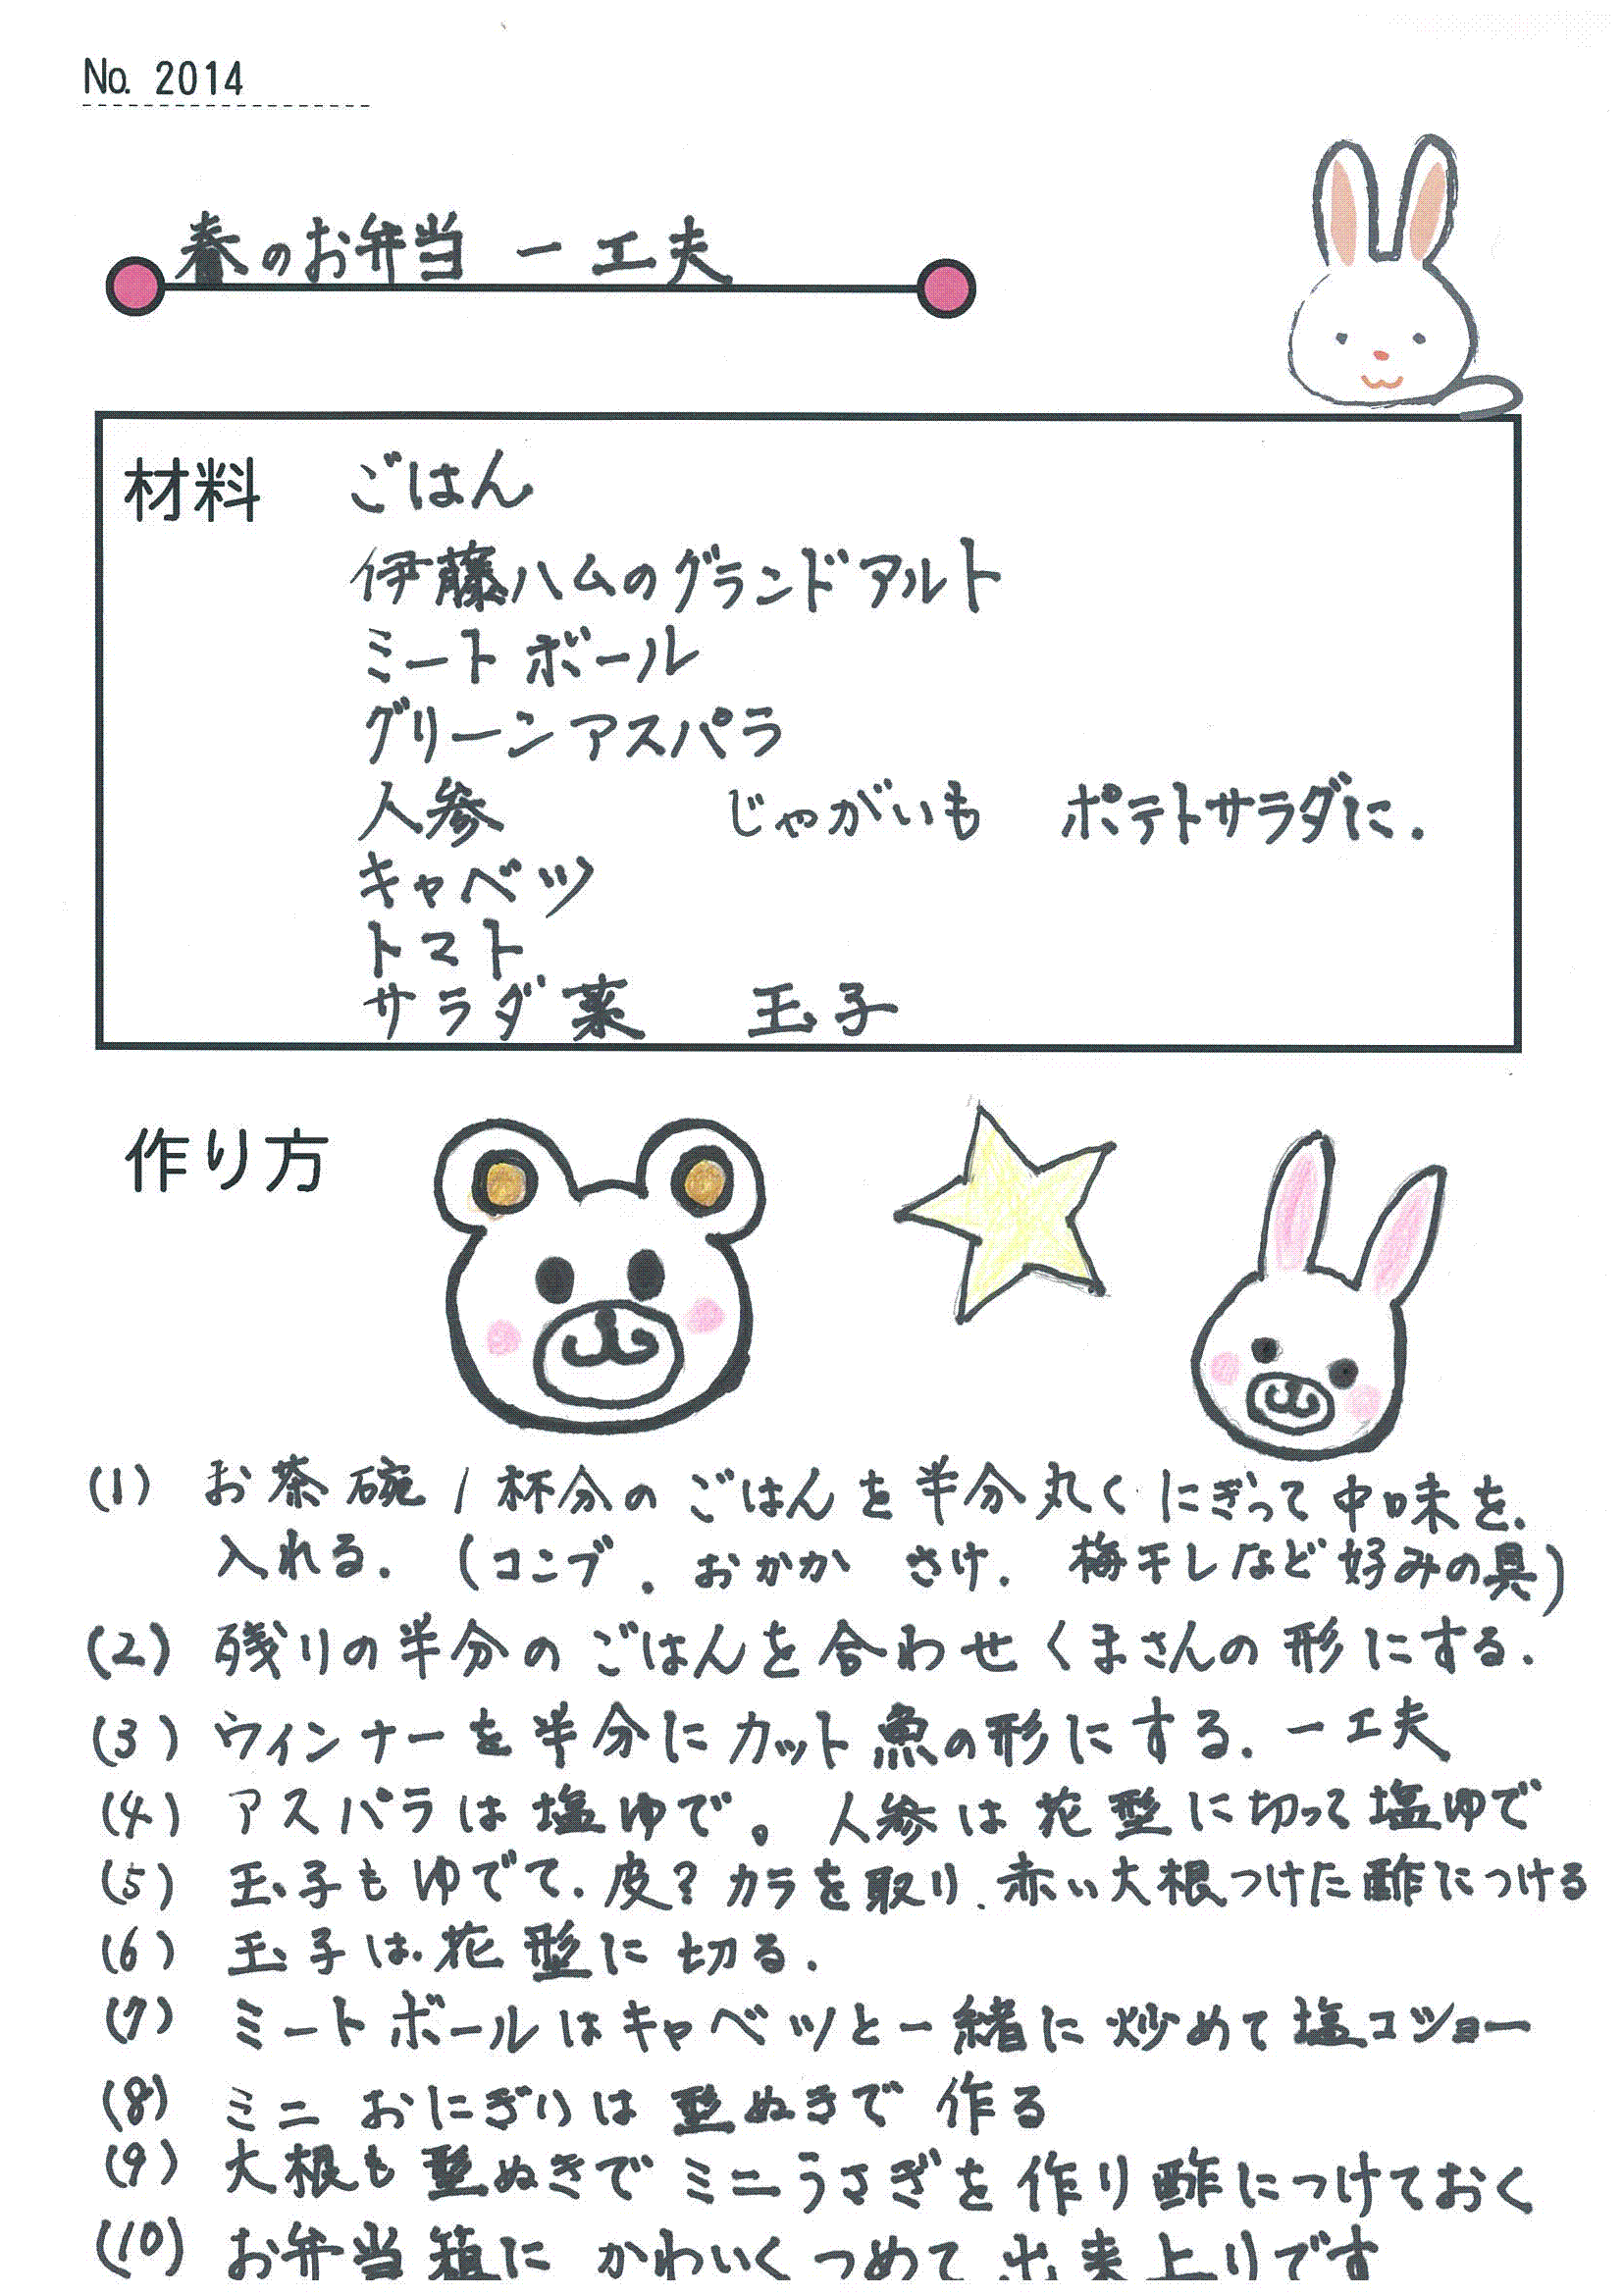 No. 2014
春のお弁当 一工夫
材料 ごはん
伊藤ハムのグランドアルト
ミートボール
グリーンアスパラ
人参 じゃがいも ポテトサラダに.
キャベツ
トマト
サラダ菜 玉子
作り方
(1) お茶碗1杯分のごはんを半分丸くにぎって中味を.
入れる. (コンブ. おかか さけ. 梅干しなど好みの具)
(2) 残りの半分のごはんを合わせくまさんの形にする.
(3) ウィンナーを半分にカット魚の形にする. 一工夫
(4) アスパラは塩ゆで。人参は花型に切って塩ゆで
(5) 玉子もゆでて. 皮?カラを取り. 赤い大根つけた酢につける
(6) 玉子は.花型に切る.
(7) ミートボールはキャベツと一緒に炒めて塩コショー
(8) ミニおにぎりは型ぬきで作る
(9) 大根も型ぬきでミニうさぎを作り酢につけておく
(10) お弁当箱にかわいくつめて出来上りです